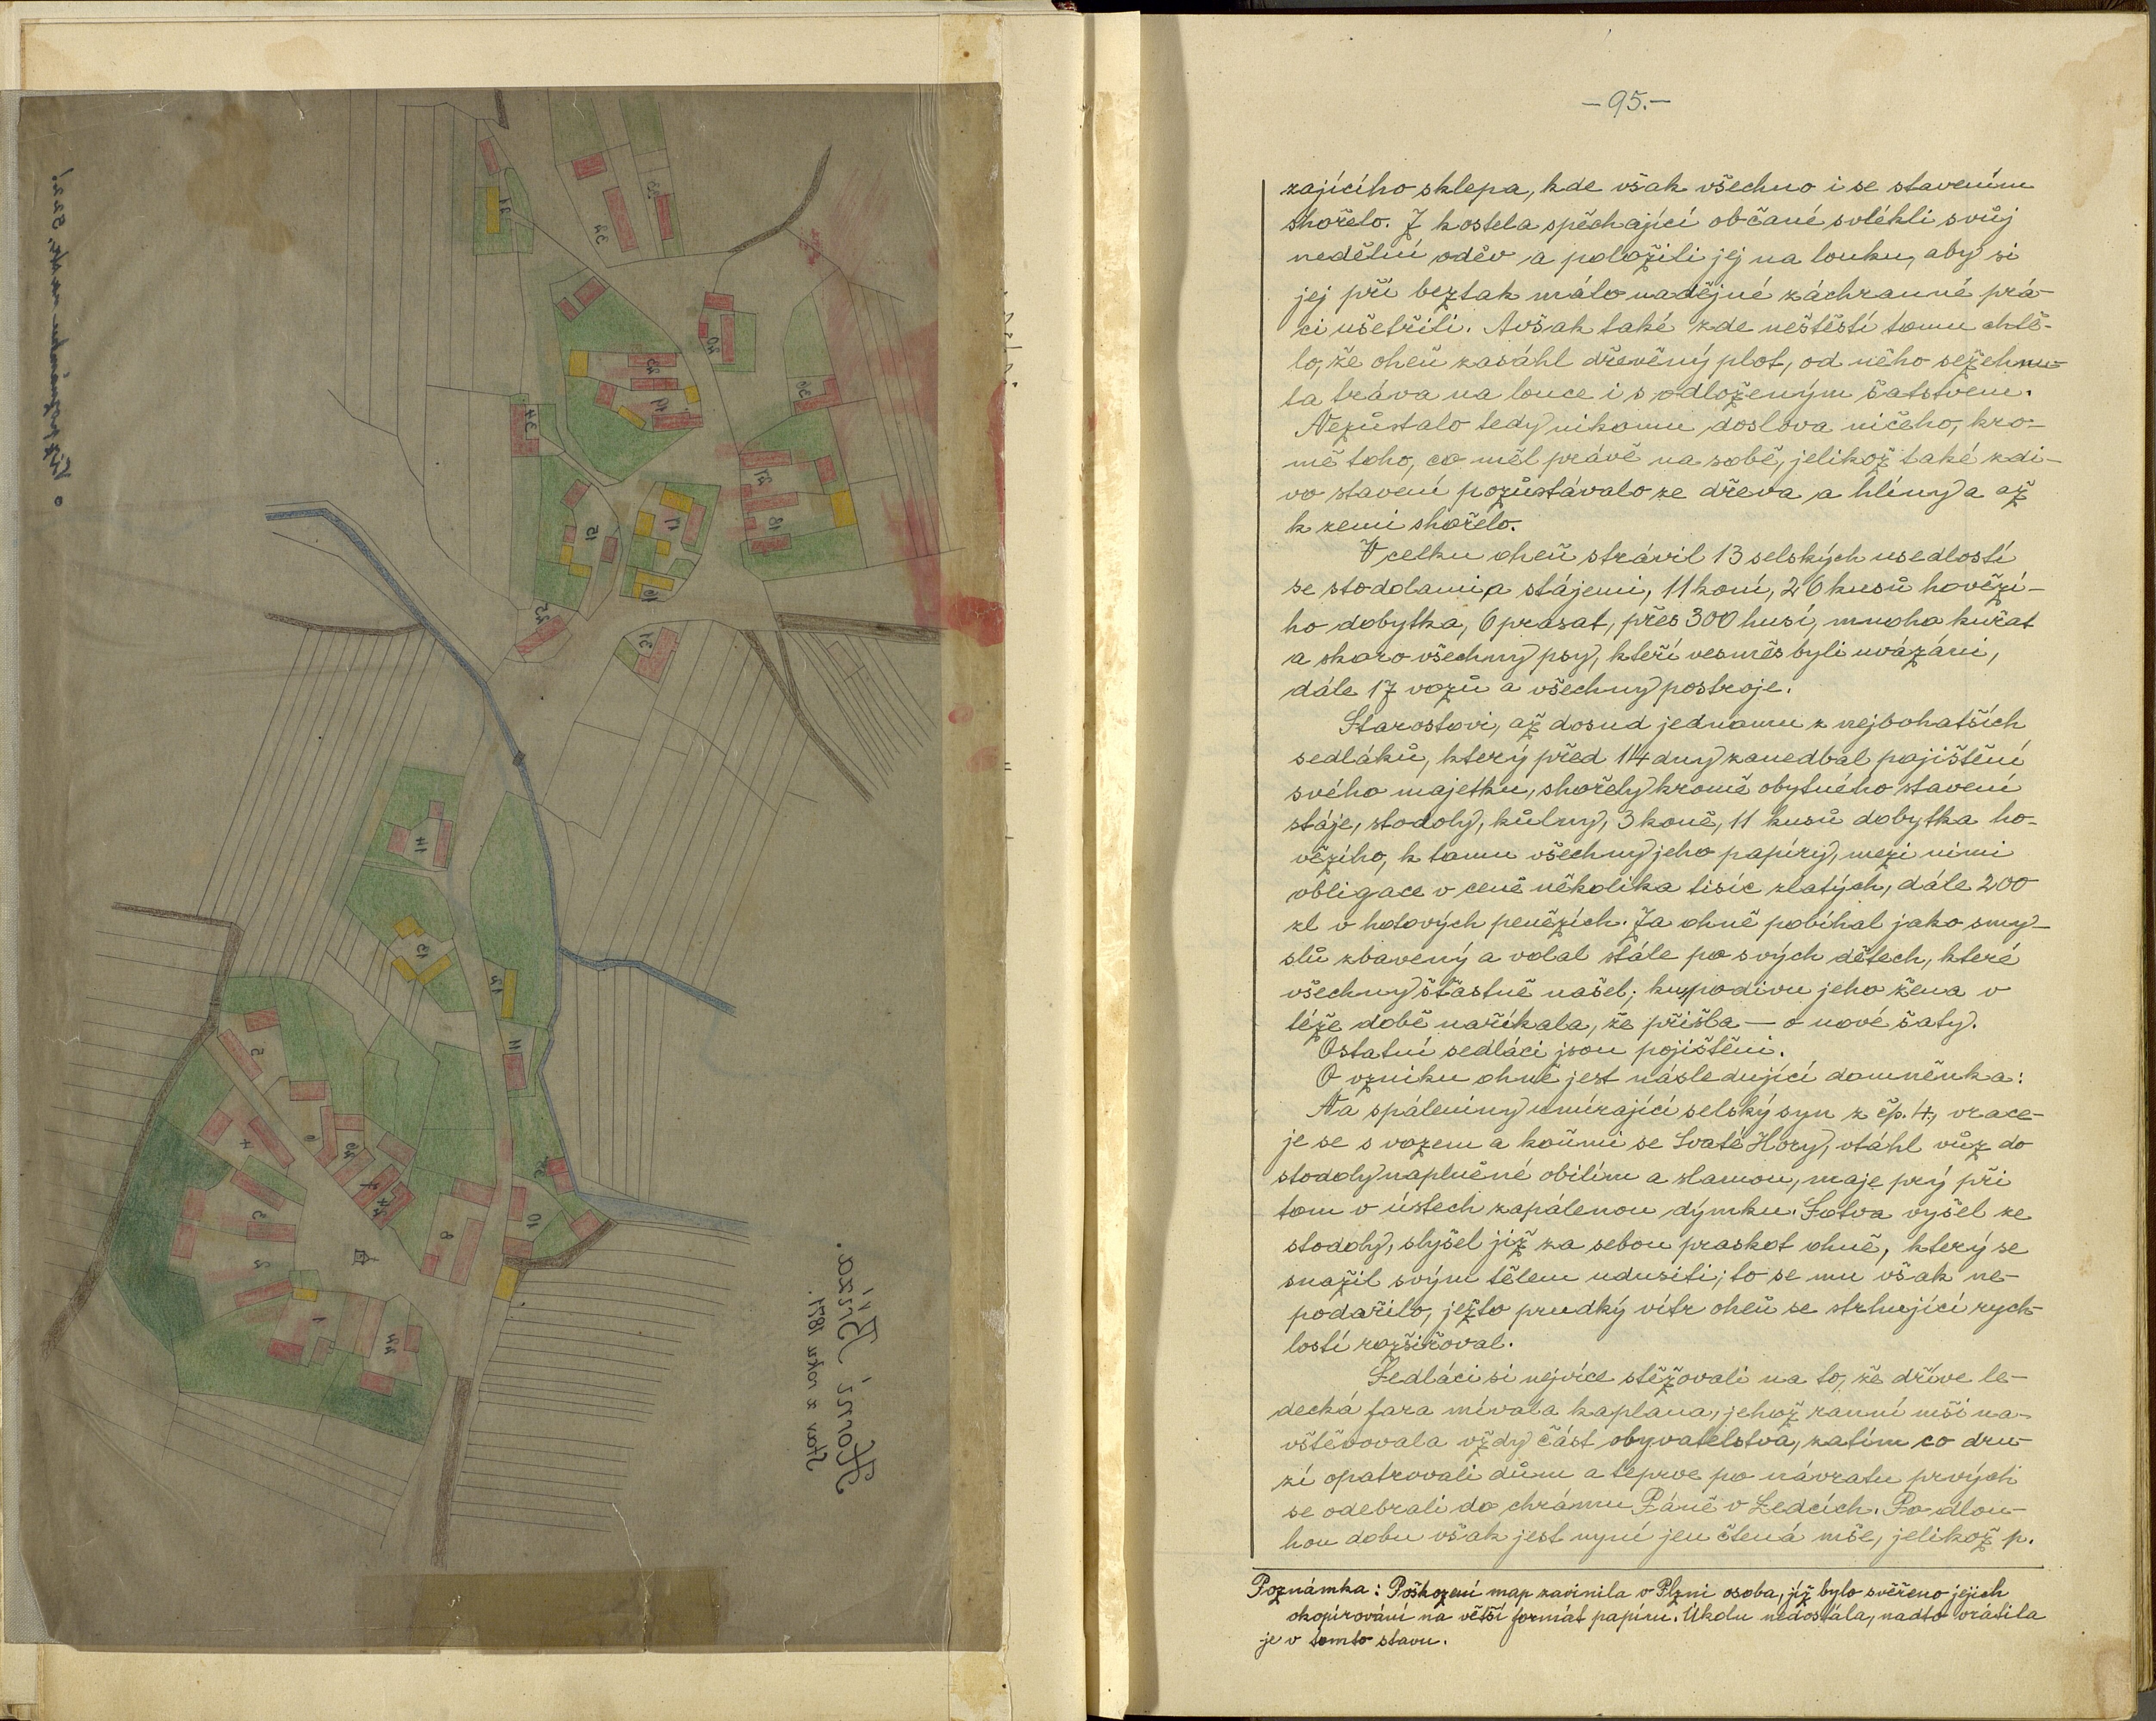 Viz poznámku na str. 95 a 2.
Horní Bříza.
Stav z roku 1871.
21
32
33
40
43
19
39
34
17
15
16
31
18
42
31
14
13
12
11
5
4
6
7
8
10
3
2
1
44
—95.—
zajícího sklepa, kde však všechno i se stavením
shořelo. Z kostela spěchající občané svlékli svůj
nedělní oděv a položili jej na louku, aby si
jej při beztak málo nadějné záchranné prá-
ci ušetřili. Avšak také zde neštěstí tomu chtě-
lo, že oheň zasáhl dřevěný plot, od něho sežehnu-
ta tráva na louce i s odloženým šatstvem.
Nezůstalo tedy nikomu doslova ničeho, kro-
mě toho, co měl právě na sobě, jelikož také zdi-
vo stavení pozůstávalo ze dřeva a hlíny a až
k zemi shořelo.
V celku oheň strávil 13 selských usedlostí
se stodolami a stájemi, 11 koní, 26 kusů hověží-
ho dobytka, 6 prasat, přes 300 husí, mnoho kuřat
a skoro všechny psy, kteří vesměs byli uvázáni,
dále 17 vozů a všechny postroje.
Starostovi, až dosud jednomu z nejbohatších
sedláků, který před 14 dny zanedbal pojištění
svého majetku, shořely kromě obytného stavení
stáje, stodoly, kůlny, 3 koně, 11 kusů dobytka ho-
vězího, k tomu všechny jeho papíry, mezi nimi
obligace v ceně několika tisíc zlatých, dále 200
zl v hotových penězích. Za ohně pobíhal jako smy-
slů zbavený a volal stále po svých dětech, které
všechny šťastně našel; kupodivu jeho žena v
téže době naříkala, že přišla — o nové šaty.
Ostatní sedláci jsou pojištěni.
O vzniku ohně jest následující domněnka:
Na spáleniny umírající selský syn z čp. 4, vrace-
je se s vozem a koňmi se Svaté Hory, vtáhl vůz do
stodoly naplněné obilím a slamou, maje prý při
tom v ústech zapálenou dýmku. Sotva vyšel ze
stodoly, slyšel již za sebou praskot ohně, který se
snažil svým tělem udusiti; to se mu však ne-
podařilo, ježto prudký vítr oheň se strhující rych-
lostí rozšiřoval.
Sedláci si nejvíce stěžovali na to, že dříve le-
decká fara mívala kaplana, jehož ranní mši na-
vštěvovala vždy část obyvatelstva, zatím co dru-
zí opatrovali dům a teprve po návratu prvých
se odebrali do chrámu Páně v Ledcích. Po dlou-
hou dobu však jest nyní jen čtená mše, jelikož p.
Poznámka: Poškození map zavinila v Plzni osoba, jíž bylo svěřeno jejich
okopírování na větší formát papíru. Úkolu nedostála, nadto vrátila
je v tomto stavu.